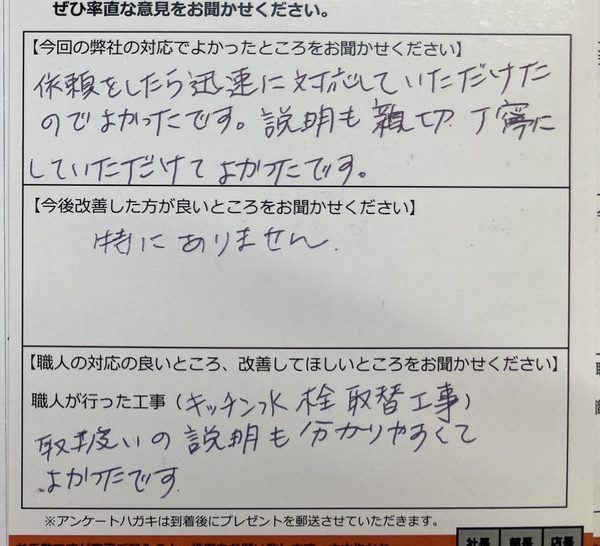 ぜひ率直な意見をお聞かせください。
【今回の弊社の対応でよかったところをお聞かせください】
依頼をしたら迅速に対応していただけた
のでよかったです。説明も親切丁寧に
していただけてよかったです。
【今後改善した方が良いところをお聞かせください】
特にありません.
【職人の対応の良いところ、改善してほしいところをお聞かせください】
職人が行った工事（キッチン水栓取替工事）
取扱いの説明も分かりやすくて
よかったです
※アンケートハガキは到着後にプレゼントを郵送させていただきます。
社長 部長 店長